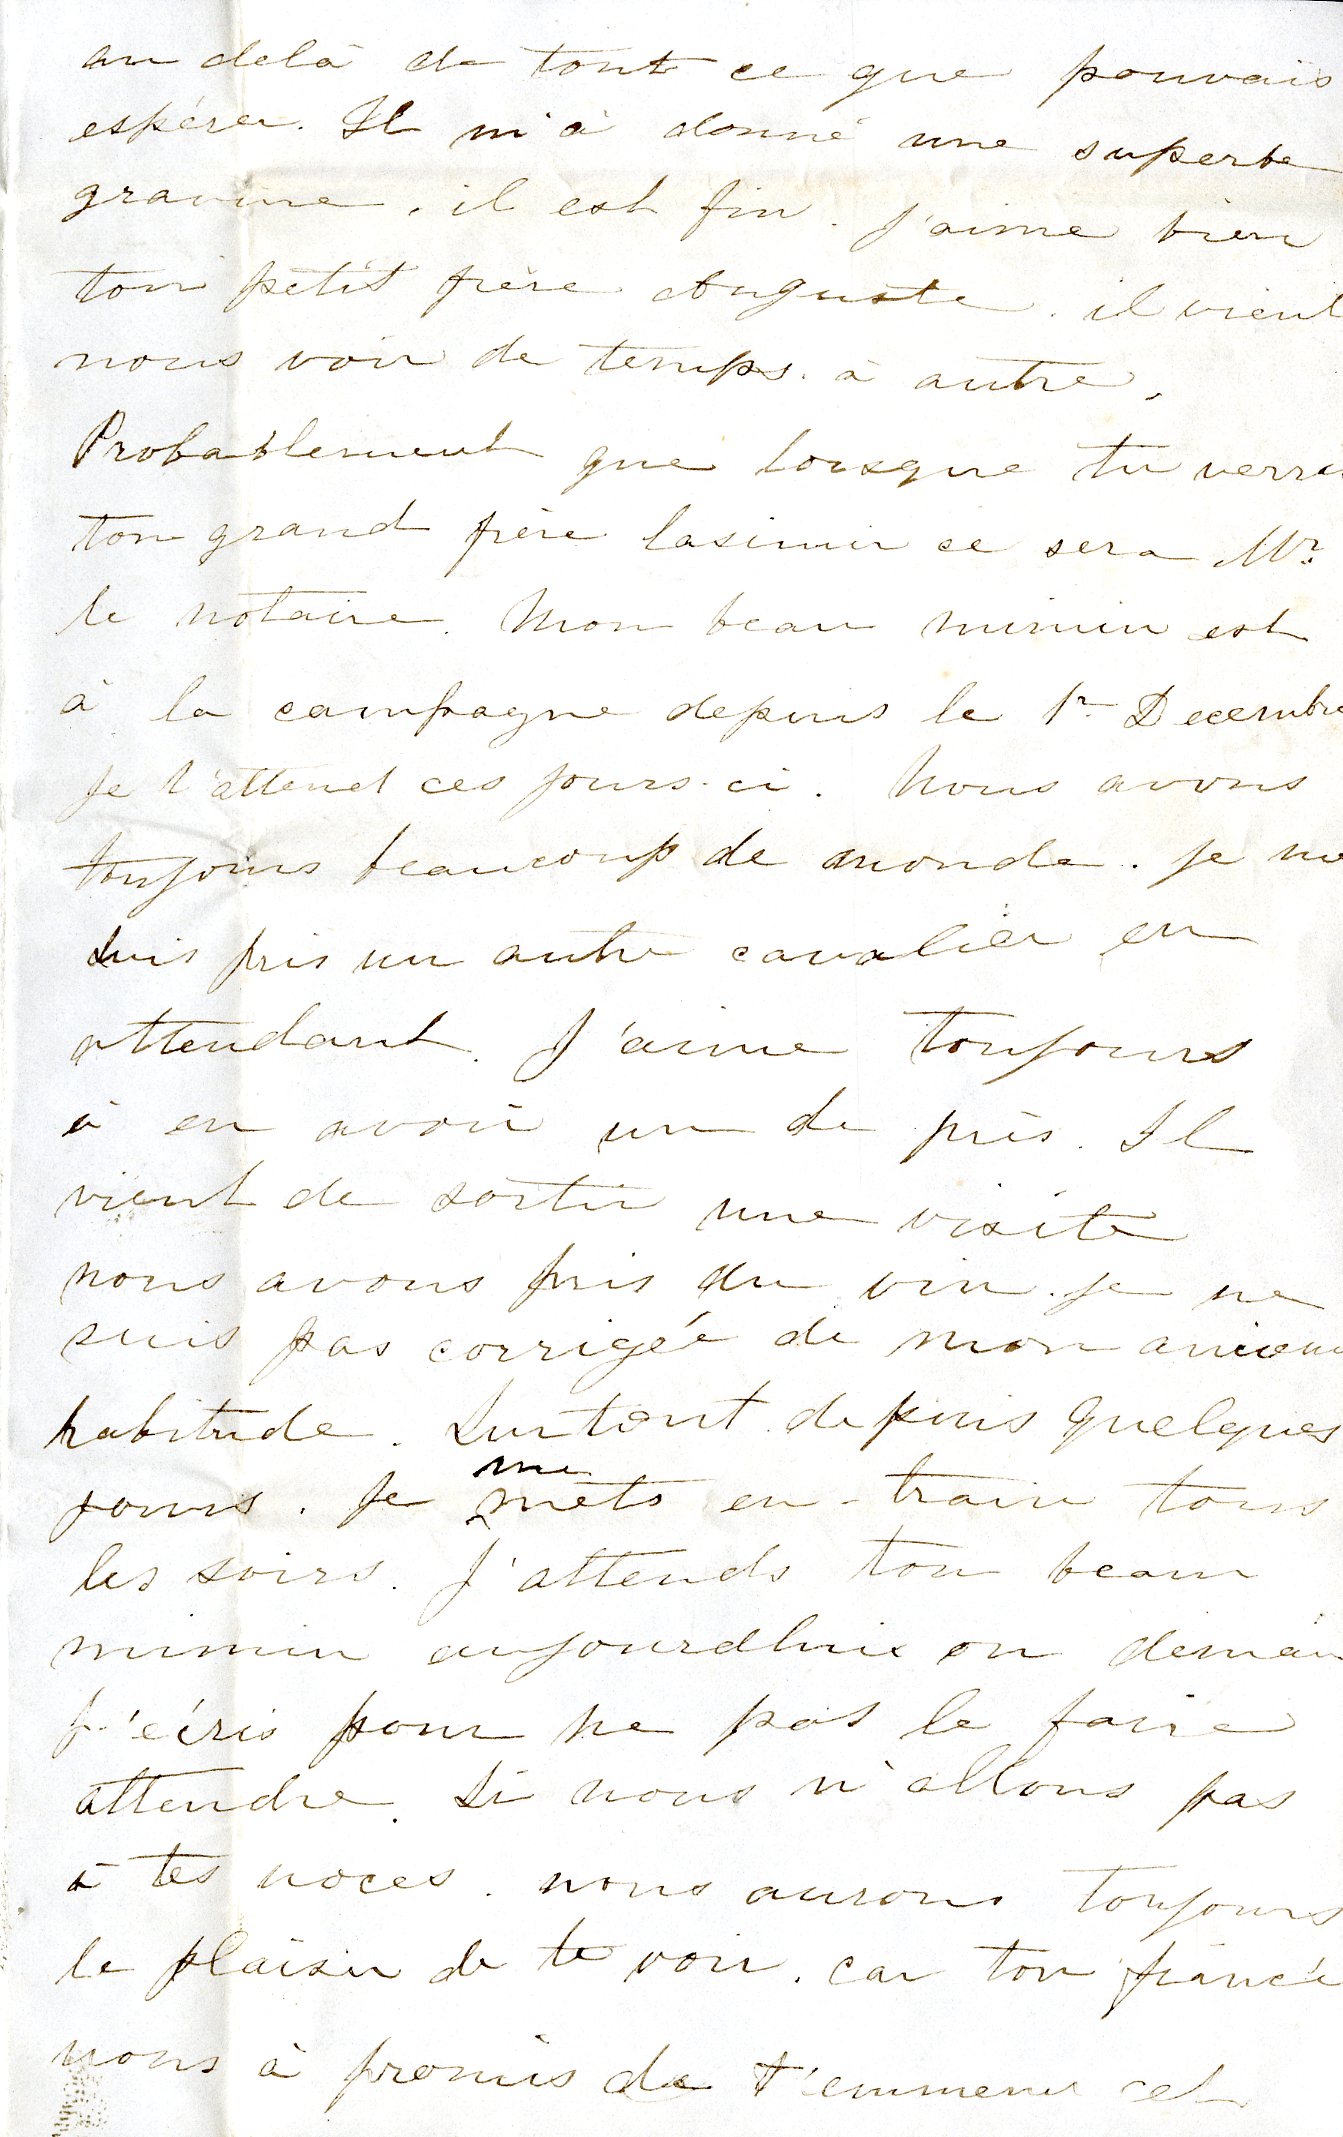 au delà de tout ce que pouvais
espérer. Il m'à donné une superbe
gravure, il est fin. J'aime bien
ton petit frère Auguste. il vient
nous voir de temps. à autre,
Probablement que lorsque tu verras
ton grand frère Casimir ce sera Mr.
le notaire. Mon beau mimin est
à la campagne depuis le 1r Decembre
Je l'attend ces jours-ci. Nous avons
toujours beaucoup de monde. je me
suis pris un autre cavalier en
attendant. J'aime toujours
à en avoir un de près. Il
vient de sortir une visite
nous avons pris du vin. je ne
suis pas corrigée de mon ancienne
habitude. Surtout depuis quelques
jours. Je me mets en-train tous
les soirs. J'attends ton beau
mimin aujourdhui ou demain
j'écris pour ne pas le faire
attendre. Si nous n'allons pas
à tes noces. nous aurons toujours
le plaisir de te voir. car ton fiancé
nous à promis de t'emmener cet